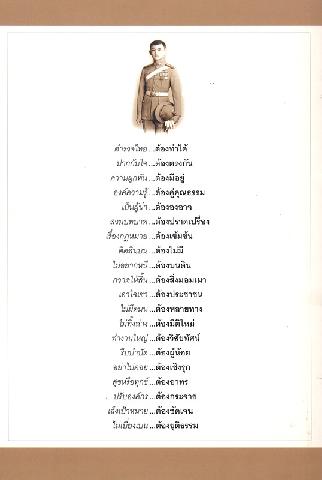 ตำรวจไทย...ต้องทำได้
ปากกับใจ...ต้องตรงกัน
ความผูกพัน...ต้องมีอยู่
องค์ความรู้...ต้องคู่คุณธรรม
เป็นผู้นำ...ต้ององอาจ
...ต้องปราดเปรื่อง
เรื่องกฎหมาย...ต้องเข้มข้น
คิดฉ้อฉล...ต้องไม่มี
...ต้องบนดิน
...ต้องพึ่งมอมเมา
เอาใจเขา...ต้องประชาชน
ไม่มืดมน...ต้องหลายทาง
...ต้องมีดีใหม่
ทำงานใหญ่...ต้องวิสัยทัศน์
...ต้องผู้น้อย
อย่าไปคอย...ต้องเชิงรุก
สุขหรือทุกข์...ต้องอาทร
...ต้องกระจาย
เล็งเป้าหมาย...ต้องชัดเจน
ไม่เบี่ยงเบน...ต้องยุติธรรม